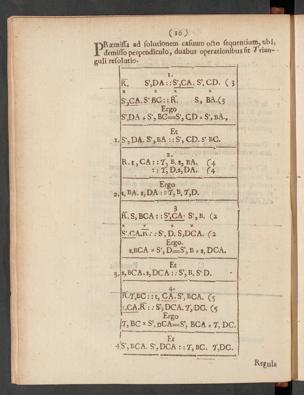 (16)
PRæmissa ad solutionem casuum octo sequentium, ubi,
demisso perpendiculo, duabus operationibus fit Trian-
guli resolutio.
1.
R. S',DA :: S',CA. S',CD. (3
S',CA. S' BC :: R. S, BA. (5
Ergo
S',DA × S', BC = S', CD × S', BA,
Et
1. S', DA. S', BA :: S', CD. S' BC.
2.
R. s, CA :: T, B. s, BA. (4
:: T, D. s, DA. (4
Ergo
2. s, BA. s, DA :: T, B. T, D.
3
R. S, BCA :: S', CA. S', B. (2
S'. CA. R :: S', D. S, DCA. (2
Ergo.
s, BCA × S', D = S', B × s, DCA.
Et
3. s, BCA. s, DCA :: S', B. S' D.
4.
R. T, BC :: s, CA. S', BCA. (5
s, CA. R :: S', DCA. T, DC. (5
Ergo
T, BC × S', DCA = S', BCA × T, DC.
Et
4. S', BCA. S', DCA :: T, BC. T, DC.
Regula